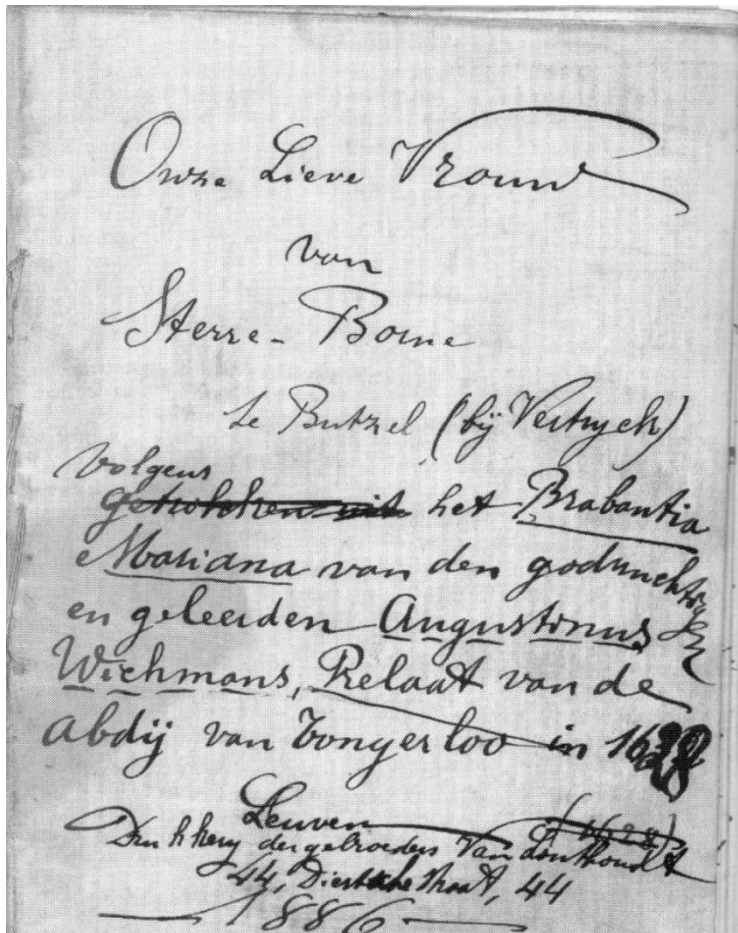 Onze Lieve Vrouw
van
Sterre-Borne
te Butzel (bij Vertryck)
Volgens
getrokken uit het Brabantia
Mariana van den godvruchtigen
en geleerden Augustinus
Wichmans, Prelaat van de
abdij van Tongerloo in 1638
Leuven
Drukkery der gebroeders Vanlinthoudt
44, Diestsche straat, 44
1886